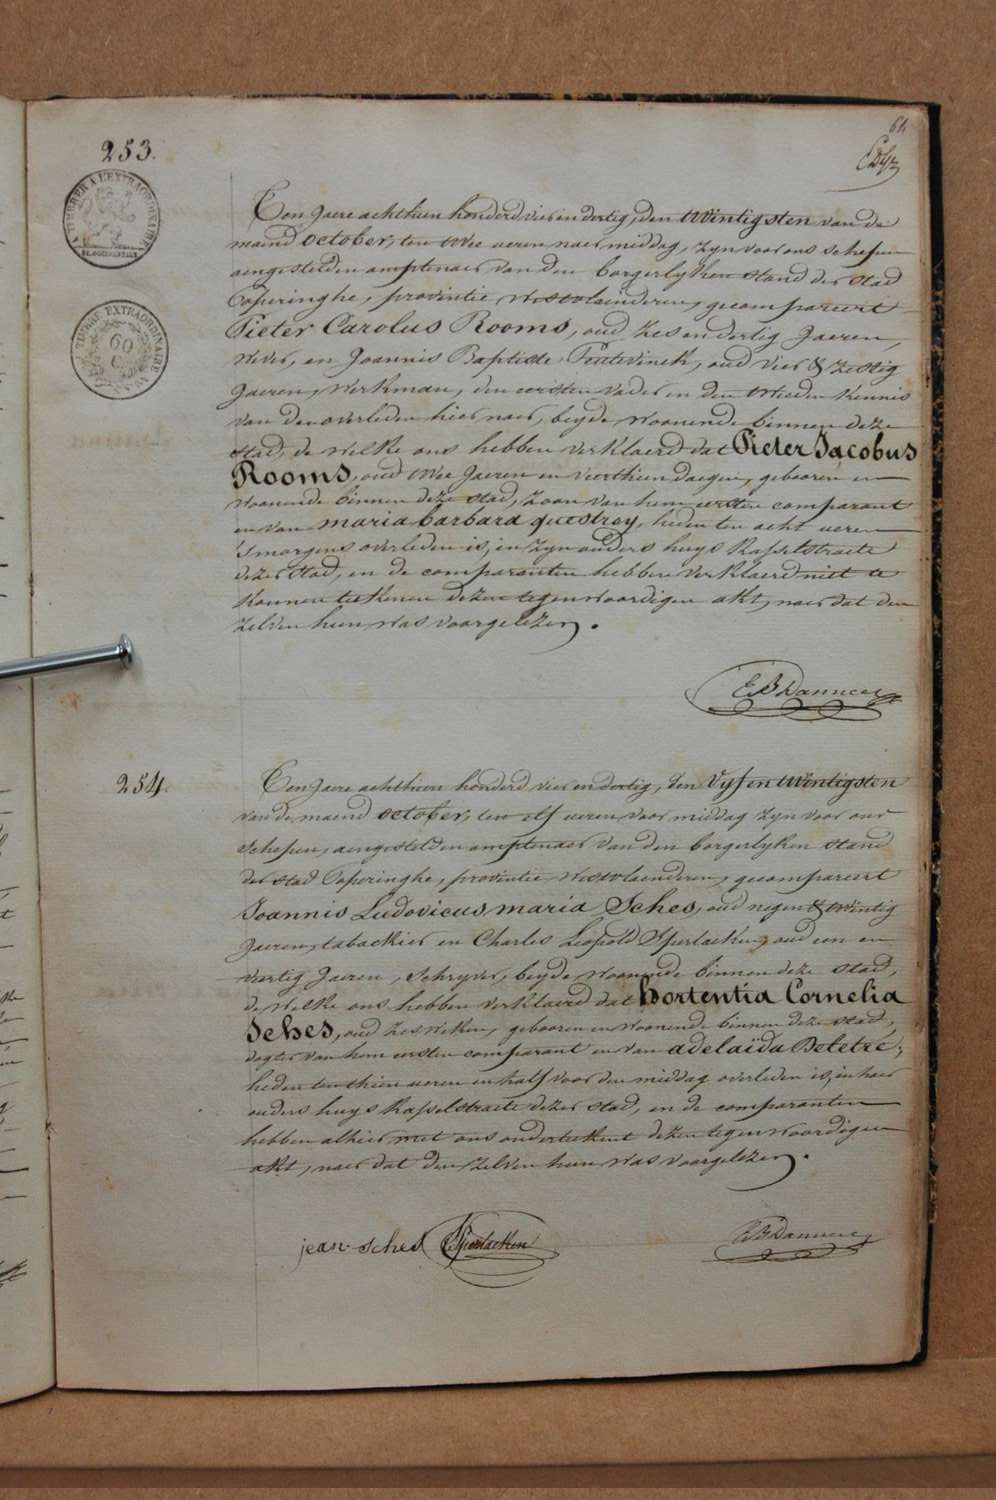 64
253.
TIMBRER A L'EXTRAORDINAIRE
TIMBRE EXTRAORDINAIRE
60
C
Ten Jaere achthien honderd vier en dertig, den twintigsten van de
maend october, ten twee ueren naer middag, zyn voor ons schepen
aengestelden amptenaer van den borgerlyken stand der stad
Poperinghe, provintie westvlaenderen, gecompareert
Pieter Carolus Rooms, oud zes en dertig Jaeren,
wever, en Joannis Baptiste Feutevinck, oud vier & zestig
Jaeren, werkman, den eersten vader en den tweeden kennis
van den overleden hier naer, beyde woonende binnen deze
stad, de welke ons hebben verklaerd dat Pieter Jacobus
Rooms, oud twee Jaeren en veerthien daegen, gebooren en
woonende binnen deze stad, zoon van hem eersten comparant
en van maria barbara questroy, heden ten acht ueren
's morgens overleden is, in zyn ouders huys Kapelstraete
dezer stad, en de comparanten hebben verklaerd niet te
konnen teekenen dezen tegenwoordigen akt, naer dat den
zelven hun was voorgelezen.
254.
Ten Jaere achthien honderd vier en dertig, den vyf en twintigsten
van de maend october, ten elf ueren voor middag zyn voor ons
schepen, aengestelden amptenaer van den borgerlyken stand
der stad Poperinghe, provintie westvlaenderen, gecompareert
Joannis Ludovicus maria Sches, oud negen & twintig
Jaeren, tabackier en Charles Leopold Sperlaeken, oud een en
veertig Jaeren, schryver, beyde woonende binnen deze stad,
de welke ons hebben verklaerd dat hortentia Cornelia
Sches, oud zes weken, gebooren en woonende binnen deze stad,
dogter van hem eersten comparant en van adelaïda Deletré,
heden ten thien ueren en half voor den middag overleden is, in haer
ouders huys Kapelstraete dezer stad, en de comparanten
hebben alhier met ons onderteekent dezen tegenwoordigen
akt, naer dat den zelven hun was voorgelezen.
jean sches Sperlaeken